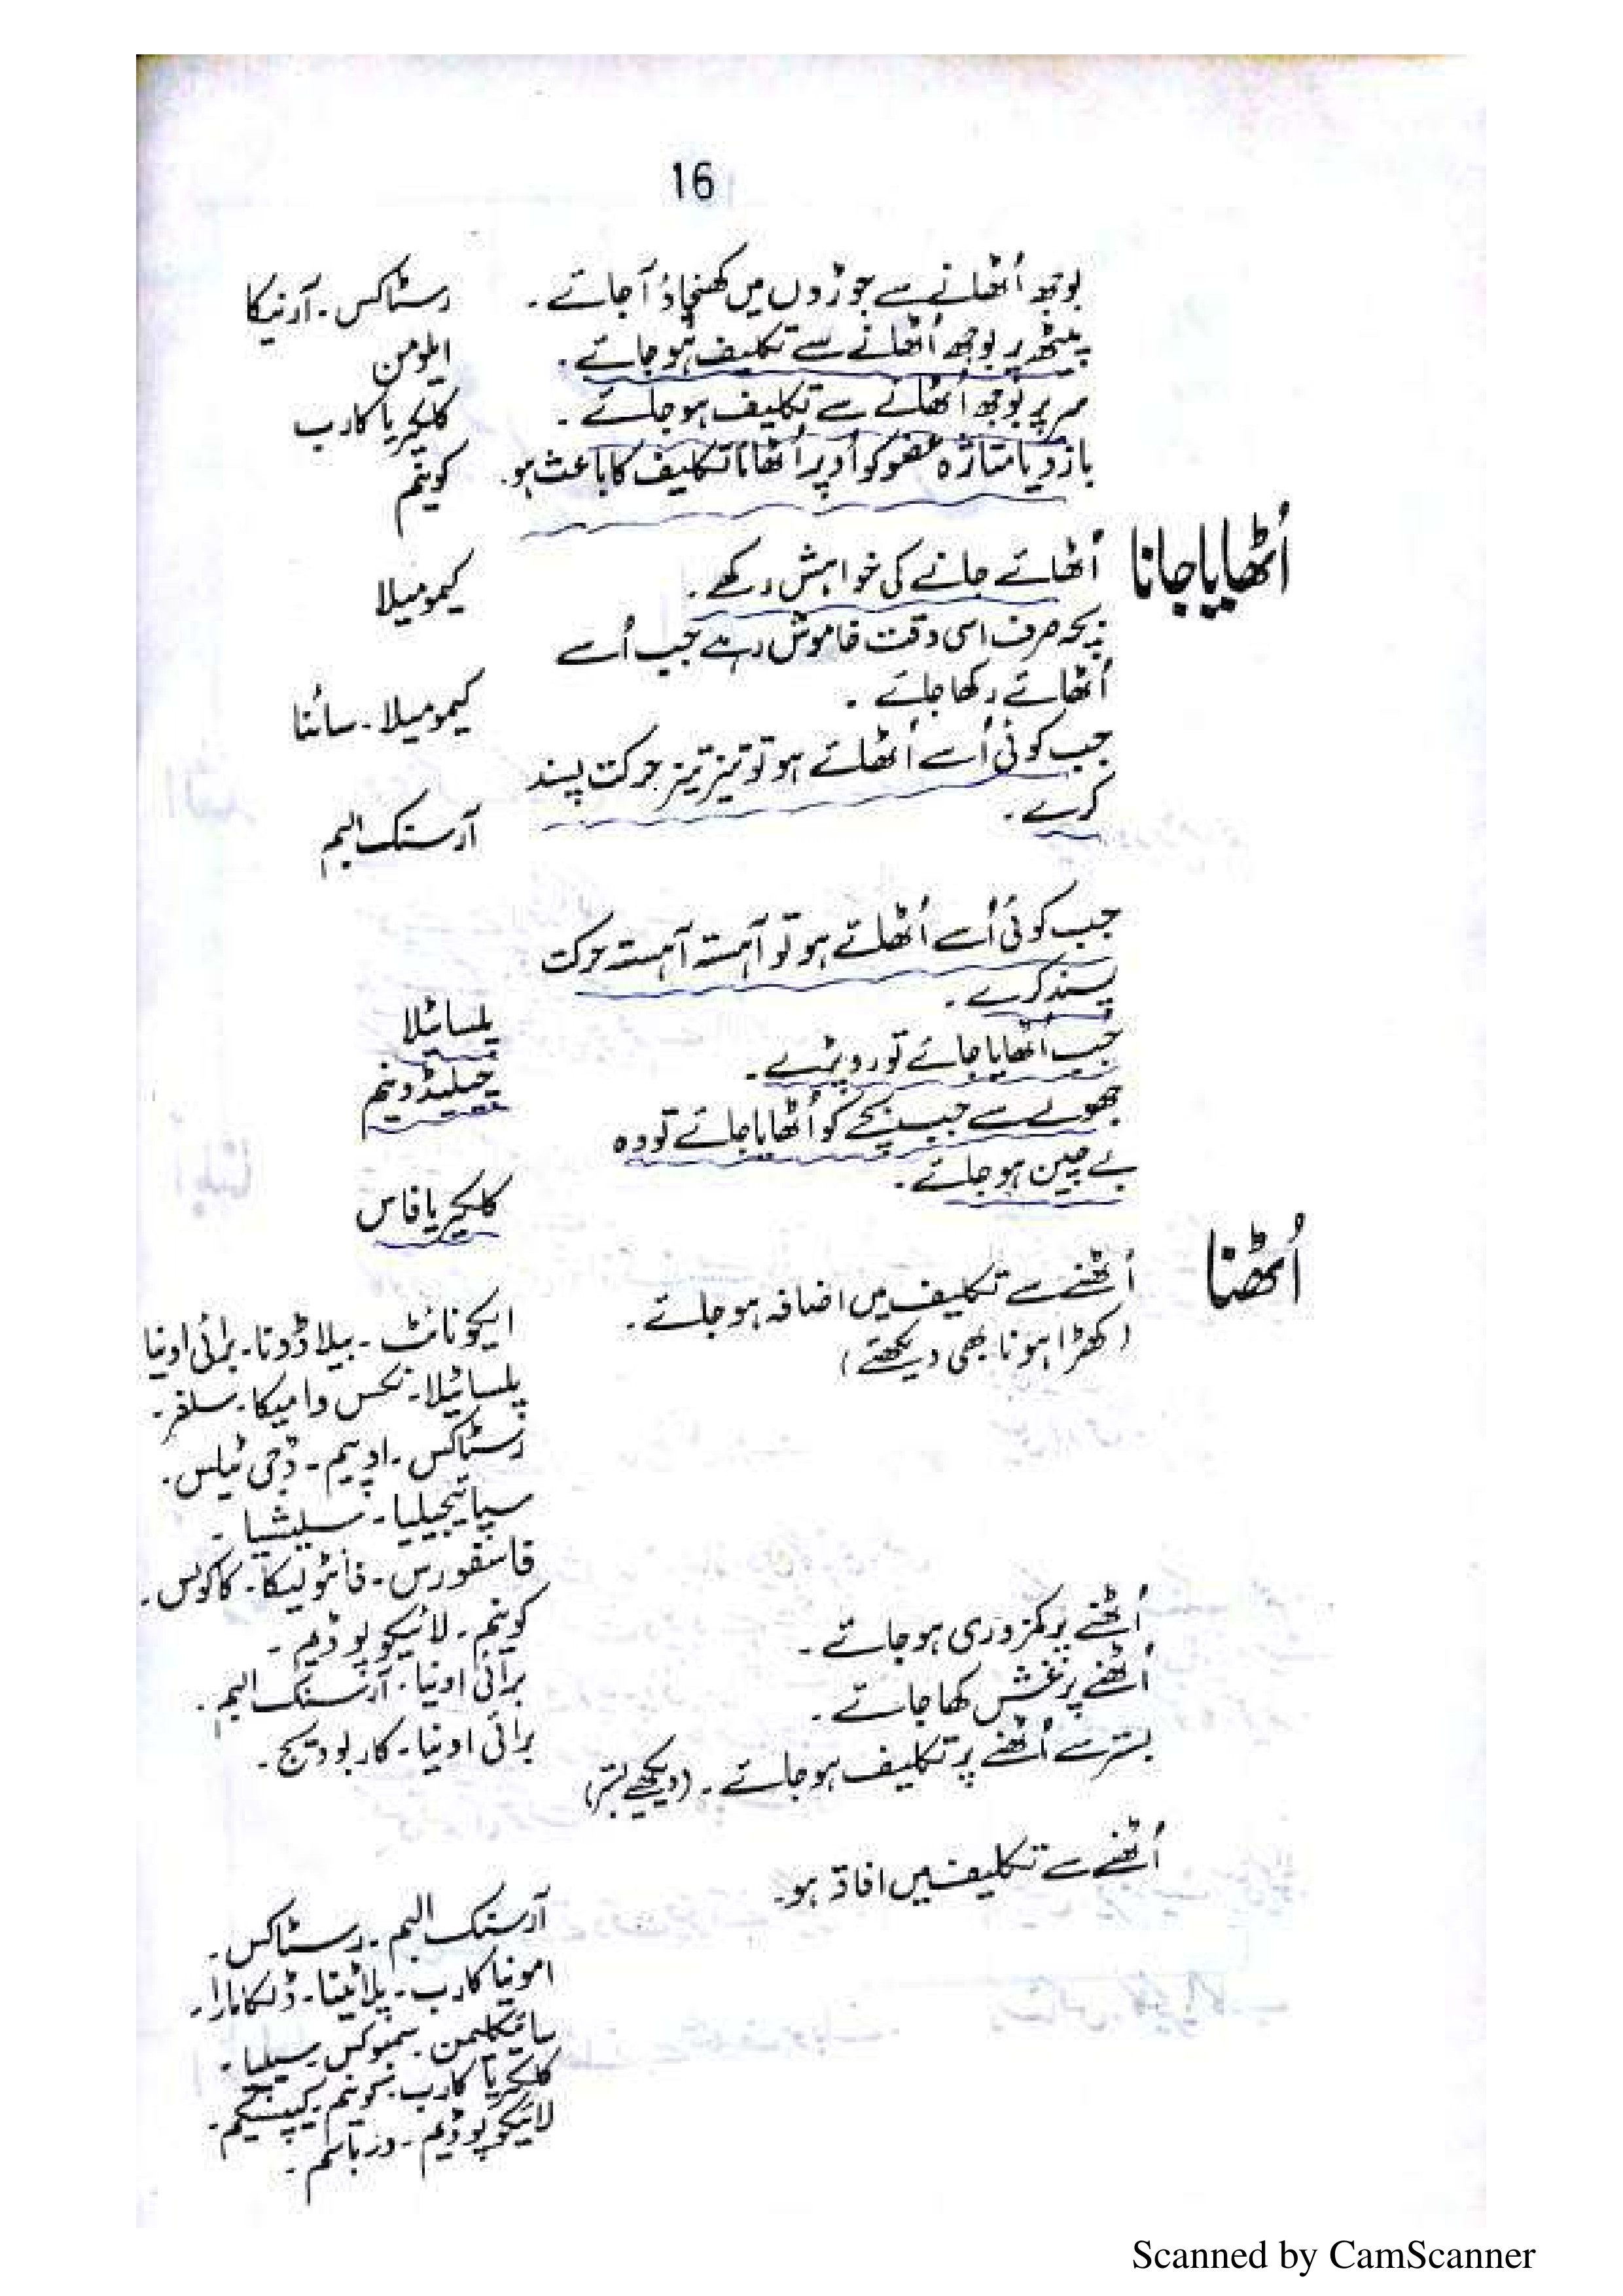 16
بوجھ اُٹھانے سے جوڑوں میں کھنچاؤ آ جائے۔ رسٹاکس۔ آرنیکا
پیٹھ پر بوجھ اُٹھانے سے تکلیف ہو جائے۔ ایلومن
سر پر بوجھ اُٹھانے سے تکلیف ہو جائے۔ کلکیریا کارب
بازو یا متاثرہ عضو کو اُوپر اُٹھانا تکلیف کا باعث ہو۔ کونیم
اُٹھایا جانا
اُٹھائے جانے کی خواہش رکھے۔ کیمومیلا
بچہ صرف اسی وقت خاموش رہے جب اُسے
اُٹھائے رکھا جائے۔ کیمومیلا۔ سائنا
جب کوئی اُسے اُٹھائے ہو تو تیز تیز حرکت پسند
کرے۔ آرسنک البم
جب کوئی اُسے اُٹھائے ہو تو آہستہ آہستہ حرکت
پسند کرے۔ پلساٹیلا
جب اُٹھایا جائے تو رو پڑے۔ چیلیڈونیم
جھولے سے جب بچے کو اُٹھایا جائے تو وہ
بے چین ہو جائے۔ کلکیریا فاس
اُٹھنا
اُٹھنے سے تکلیف میں اضافہ ہو جائے۔ ایکونائٹ۔ بیلاڈونا۔ برائی اونیا
(کھڑا ہونا بھی دیکھئے)
پلساٹیلا۔ نکس وامیکا۔ سلفر۔
رسٹاکس۔ اوپیم۔ ڈجی ٹیلس۔
سپائیجیلیا۔ سلیشیا۔
فاسفورس۔ فائٹولیکا۔ کاکولس۔
اُٹھنے پر کمزوری ہو جائے۔ کونیم۔ لائیکوپوڈیم۔
اُٹھنے پر غش کھا جائے۔ برائی اونیا۔ آرسنک البم۔
بستر سے اُٹھنے پر تکلیف ہو جائے۔ (دیکھیے بستر) برائی اونیا۔ کاربوویج۔
اُٹھنے سے تکلیف میں افاقہ ہو۔
آرسنک البم۔ رسٹاکس۔
امونیا کارب۔ پلاٹینا۔ ڈلکامارا۔
سائیکلیمن۔ سمبوکس۔
کلکیریا کارب۔ کونیم۔ کیپسیکم۔
لائیکوپوڈیم۔
Scanned by CamScanner